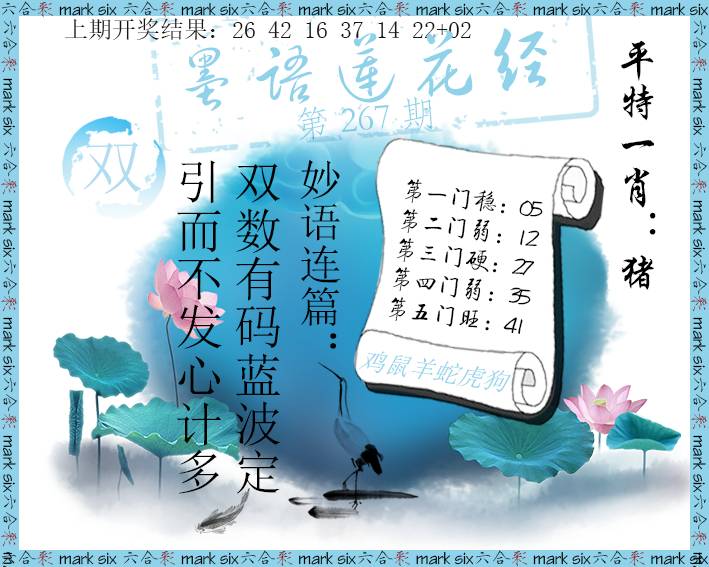 上期开奖结果：26 42 16 37 14 22+02
墨语莲花经
第 267 期
双
平特一肖：猪
妙语连篇：
双数有码蓝波定
引而不发心计多
第一门稳：05
第二门弱：12
第三门硬：27
第四门弱：35
第五门旺：41
鸡鼠羊蛇虎狗
六合彩 mark six 六合彩 mark six 六合彩 mark six 六合彩 mark six 六合彩 mark six 六合彩 mark six